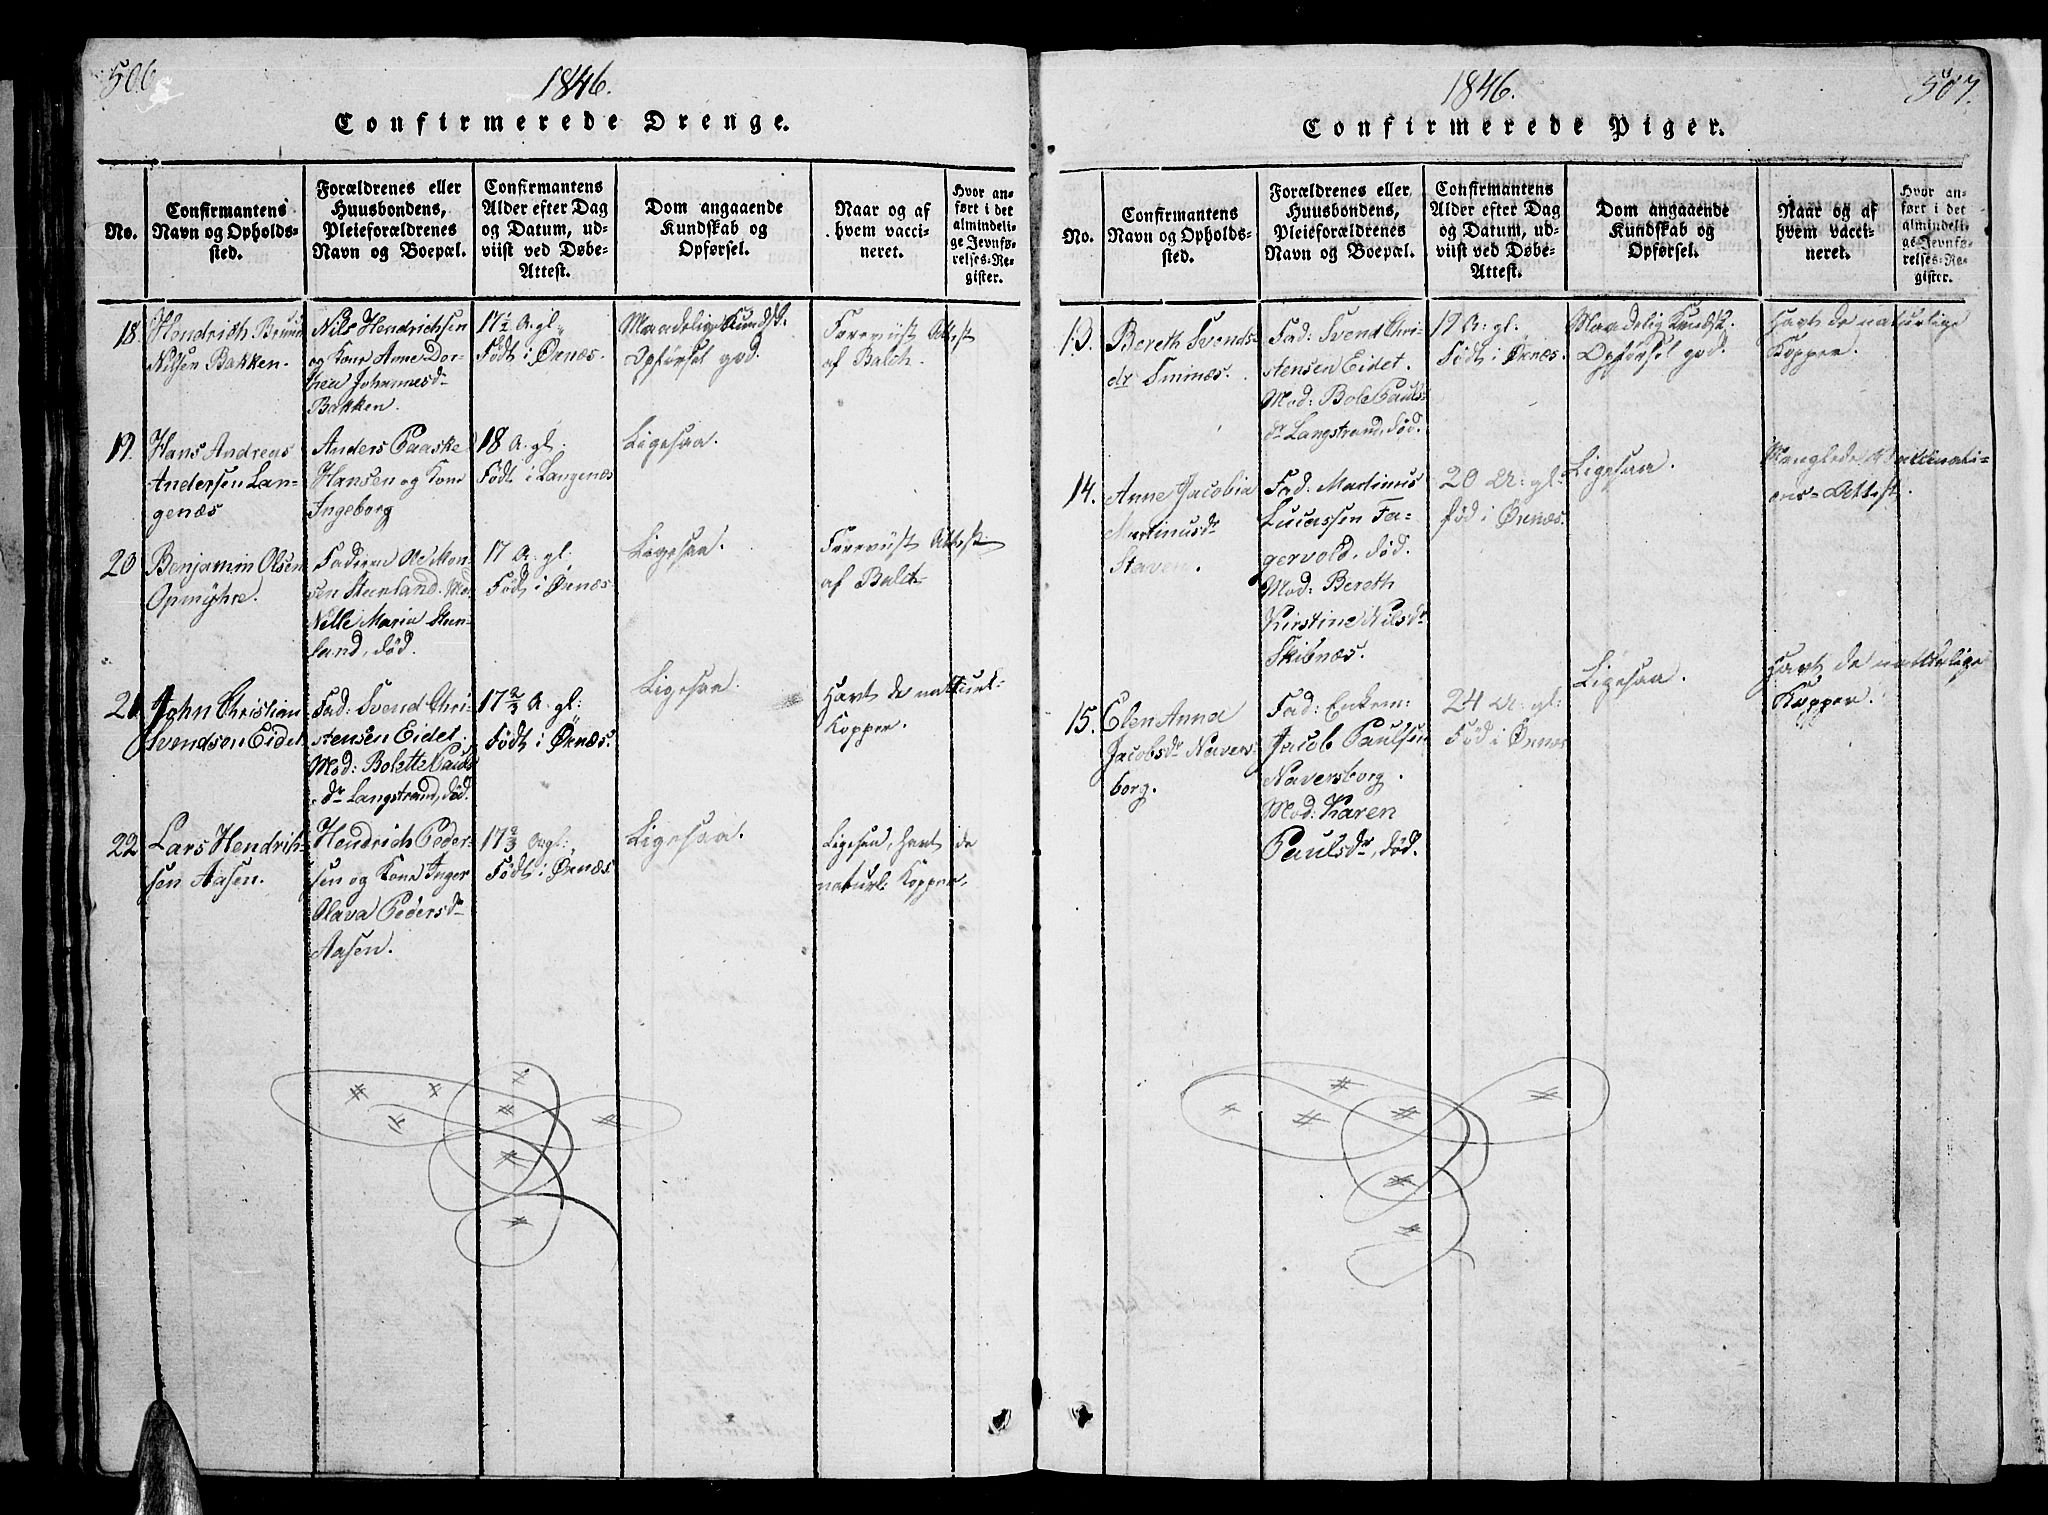 506
1846.
Confirmerede Drenge.
No.
Confirmantens
Navn og Opholds-
sted.
Forældrenes eller
Huusbondens,
Pleieforældrenes
Navn og Boepæl.
Confirmantens
Alder efter Dag
og Datum, ud-
viist ved Døbe-
Attest.
Dom angaaende
Kundskab og
Opførsel.
Naar og af
hvem vacci-
neret.
Hvor an-
ført i det
almindeli-
ge Jevnfø-
relses-Re-
gister.
18.
Hendrich
Nilsen Bakken.
Nils Hendrichsen
og Kone Anne Dor-
thea Johannesd
Bakken.
17½ A. gl.
Født i Ørnæs.
Maadelig Kundsk.
Opførsel god.
Foreviist Attest
af Balch.
19.
Hans Andreas
Andersen Lan-
genæs
Anders Paaske
Hansen og Kone
Ingeborg
18 A. gl.
Født i Langenæs
Ligesaa.
20
Benjamin Olsen
Opmyhre.
Faderen Ole Mon-
sen Steenland. Mod
Nille Maria Steen-
land, død.
17 A. gl:
Født i Ørnæs
Ligesaa.
Foreviist Attest
af Balch
21
John Christian
Svendsen Eidet
Fad: Svend Chri-
stensen Eidet.
Mod: Bolette Pauls
dr Langstrand, død.
17⅔ A. gl:
Født i Ørnæs.
Ligesaa.
Havt de naturl-
Kopper.
22
Lars Hendrich-
sen Aasen.
Hendrich Peder-
sen og Kone Inger
Olava Pedersdr
Aasen.
17⅔ A gl:
Født i Ørnæs
Ligesaa.
Ligesaa, havt de
naturl: Kopper.
507.
1846.
Confirmerede Piger.
No.
Confirmantens
Navn og Opholds-
sted.
Forældrenes eller
Huusbondens,
Pleieforældrenes
Navn og Boepæl.
Confirmantens
Alder efter Dag
og Datum, ud-
viist ved Døbe-
Attest.
Dom angaaende
Kundskab og
Opførsel.
Naar og af
hvem vacci-
neret.
Hvor an-
ført i det
almindeli-
ge Jevnfø-
relses-Re-
gister.
13.
Bereth Svends-
dr Sminæs.
Fad: Svend Chri-
stensen Eidet.
Mod: Bole Pauls
dr Langstrand, død.
19 A. gl.
Født i Ørnæs.
Maadelig Kundsk.
Opførsel god.
Havt de naturlige
Kopper.
14.
Anne Jacobia
Martinusdr
Staven.
Fad: Martinus
Lucassen Fa-
gervold, død.
Mod: Bereth
Kirstine Nilsdr
Skibnæs.
20 A: gl:
fød i Ørnæs.
Ligesaa.
Manglede Vaccinati-
ons-Attest.
15.
Elen Anna
Jacobsdr Navers-
borg.
Fad: Enkem:
Jacob Paulsen
Naversborg.
Mod: Karen
Paulsdr, død.
24 A: gl:
Fød i Ørnæs
Ligesaa.
Havt de naturlige
Kopper.